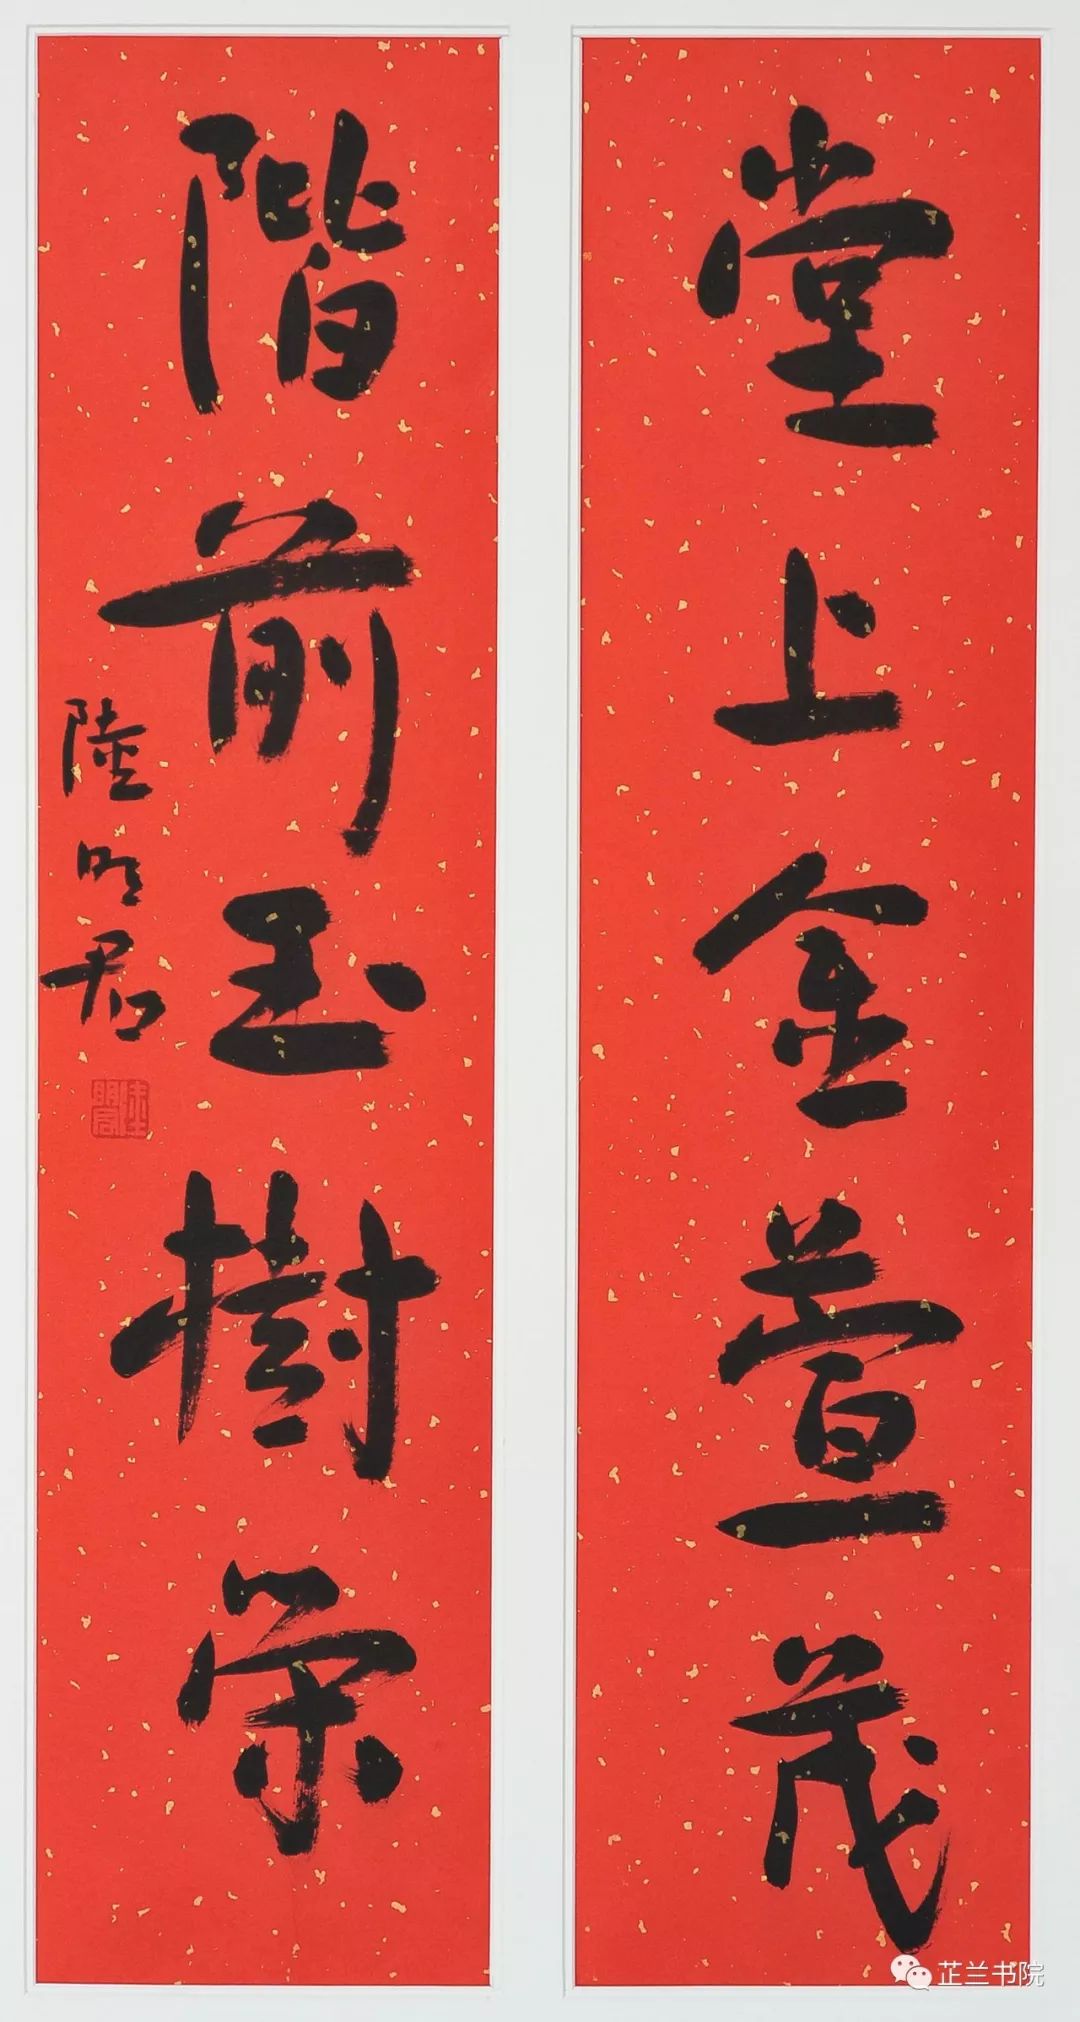 堂上金萱茂
階前玉樹榮
陸明君
陆明君
芷兰书院